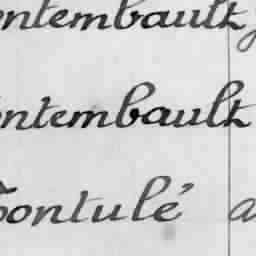 ontembault
ontembault
Tontulé a